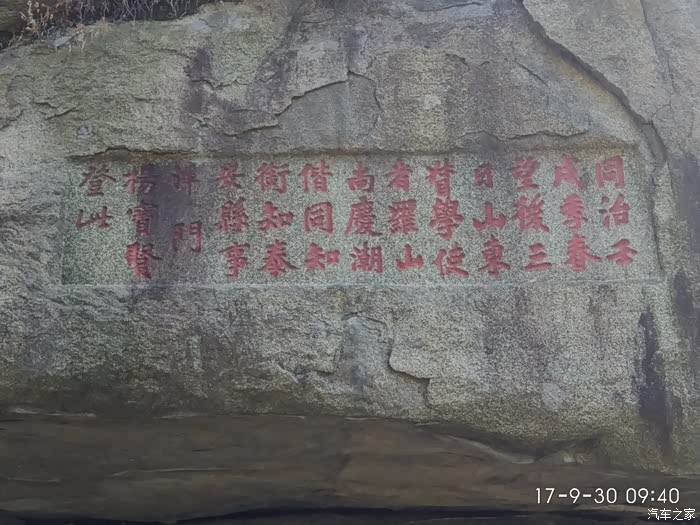 同治壬
戌季春
望後三
日山東
督學使
者羅山
尚慶潮
偕同知
銜知泰
安縣事
門
楊寶賢
登此
17-9-30 09:40
汽车之家